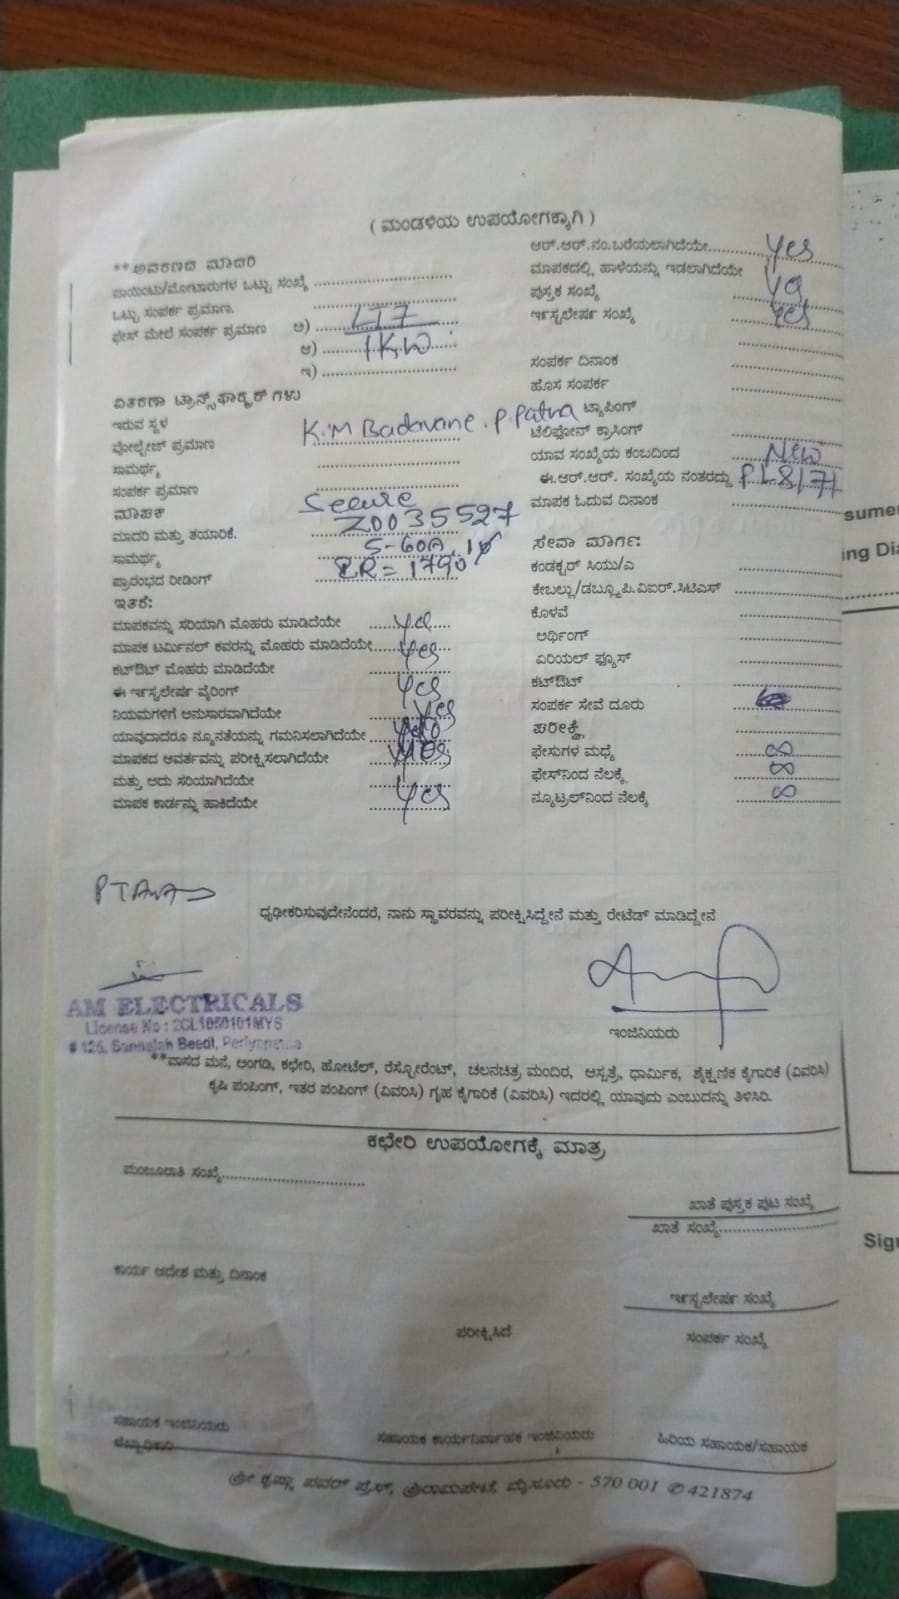 ( ಮಂಡಳಿಯ ಉಪಯೋಗಕ್ಕಾಗಿ )
**ಅವಕಣದ ಮಾದರಿ
ಪಾಯಿಂಟು/ಮೋಟಾರುಗಳ ಒಟ್ಟು ಸಂಖ್ಯೆ
ಒಟ್ಟು ಸಂಪರ್ಕ ಪ್ರಮಾಣ.
ಫೇಸ್ ಮೇಲೆ ಸಂಪರ್ಕ ಪ್ರಮಾಣ ಅ) LT7
ಆ) 1KW
ಇ)
ವಿತರಣಾ ಟ್ರಾನ್ಸ್‌ಫಾರ್‍ಮರ್ ಗಳು
ಇರುವ ಸ್ಥಳ K.M Badavane. P. Patna
ವೋಲ್ಟೇಜ್ ಪ್ರಮಾಣ
ಸಾಮರ್ಥ್ಯ
ಸಂಪರ್ಕ ಪ್ರಮಾಣ
ಮಾಪಕ Secure
ಮಾದರಿ ಮತ್ತು ತಯಾರಿಕೆ. Z0035527
ಸಾಮರ್ಥ್ಯ 5-60A
ಪ್ರಾರಂಭದ ರೀಡಿಂಗ್
ಇತರೆ:
ಮಾಪಕವನ್ನು ಸರಿಯಾಗಿ ಮೊಹರು ಮಾಡಿದೆಯೇ Yes
ಮಾಪಕ ಟರ್ಮಿನಲ್ ಕವರನ್ನು ಮೊಹರು ಮಾಡಿದೆಯೇ Yes
ಕಟ್‌ಔಟ್ ಮೊಹರು ಮಾಡಿದೆಯೇ Yes
ಈ ಇನ್ಸ್ಟಲೇಷನ್ ವೈರಿಂಗ್
ನಿಯಮಗಳಿಗೆ ಅನುಸಾರವಾಗಿದೆಯೇ Yes
ಯಾವುದಾದರೂ ನ್ಯೂನತೆಯನ್ನು ಗಮನಿಸಲಾಗಿದೆಯೇ
ಮಾಪಕದ ಆವರ್ತವನ್ನು ಪರೀಕ್ಷಿಸಲಾಗಿದೆಯೇ
ಮತ್ತು ಅದು ಸರಿಯಾಗಿದೆಯೇ
ಮಾಪಕ ಕಾರ್ಡನ್ನು ಹಾಕಿದೆಯೇ Yes
ಆರ್.ಆರ್.ನಂ.ಬರೆಯಲಾಗಿದೆಯೇ Yes
ಮಾಪಕದಲ್ಲಿ ಹಾಳೆಯನ್ನು ಇಡಲಾಗಿದೆಯೇ Yes
ಪುಸ್ತಕ ಸಂಖ್ಯೆ Yes
ಇನ್ಸ್ಟಲೇಷನ್ ಸಂಖ್ಯೆ
ಸಂಪರ್ಕ ದಿನಾಂಕ
ಹೊಸ ಸಂಪರ್ಕ
ಟ್ಯಾಪಿಂಗ್
ಟೆಲಿಫೋನ್ ಕ್ರಾಸಿಂಗ್
ಯಾವ ಸಂಖ್ಯೆಯ ಕಂಬದಿಂದ New
ಈ.ಆರ್.ಆರ್. ಸಂಖ್ಯೆಯ ನಂತರದ್ದು
ಮಾಪಕ ಓದುವ ದಿನಾಂಕ
ಸೇವಾ ಮಾರ್ಗ:
ಕಂಡಕ್ಟರ್ ಸಿಯು/ಎ
ಕೇಬಲ್ಲು/ಡಬ್ಲ್ಯೂಪಿ.ವಿಐರ್.ಸಿಟಿಎಸ್
ಕೊಳವೆ
ಅರ್ಥಿಂಗ್
ಏರಿಯಲ್ ಫ್ಯೂಸ್
ಕಟ್‌ಔಟ್
ಸಂಪರ್ಕ ಸೇವೆ ದೂರು
ಪರೀಕ್ಷೆ
ಫೇಸುಗಳ ಮಧ್ಯೆ ∞
ಫೇಸ್‌ನಿಂದ ನೆಲಕ್ಕೆ ∞
ನ್ಯೂಟ್ರಲ್‌ನಿಂದ ನೆಲಕ್ಕೆ ∞
sumer
ing Dia
ಧೃಢೀಕರಿಸುವುದೇನೆಂದರೆ, ನಾನು ಸ್ಥಾವರವನ್ನು ಪರೀಕ್ಷಿಸಿದ್ದೇನೆ ಮತ್ತು ರೇಟೆಡ್ ಮಾಡಿದ್ದೇನೆ
ಇಂಜಿನಿಯರು
AM ELECTRICALS
License No : 2CL1050101MYS
# 125, Sannaiah Beedi, Periyapatna
**ವಾಸದ ಮನೆ, ಅಂಗಡಿ, ಕಛೇರಿ, ಹೋಟೆಲ್, ರೆಸ್ಟೋರೆಂಟ್, ಚಲನಚಿತ್ರ ಮಂದಿರ, ಆಸ್ಪತ್ರೆ, ಧಾರ್ಮಿಕ, ಶೈಕ್ಷಣಿಕ ಕೈಗಾರಿಕೆ (ವಿವರಿಸಿ)
ಕೃಷಿ ಪಂಪಿಂಗ್, ಇತರ ಪಂಪಿಂಗ್ (ವಿವರಿಸಿ) ಗೃಹ ಕೈಗಾರಿಕೆ (ವಿವರಿಸಿ) ಇದರಲ್ಲಿ ಯಾವುದು ಎಂಬುದನ್ನು ತಿಳಿಸಿರಿ.
ಕಛೇರಿ ಉಪಯೋಗಕ್ಕೆ ಮಾತ್ರ
ಮಂಜೂರಾತಿ ಸಂಖ್ಯೆ
ಖಾತೆ ಪುಸ್ತಕ ಪುಟ ಸಂಖ್ಯೆ
ಖಾತೆ ಸಂಖ್ಯೆ
Sign
ಕಾರ್ಯ ಆದೇಶ ಮತ್ತು ದಿನಾಂಕ
ಇನ್ಸ್ಟಲೇಷನ್ ಸಂಖ್ಯೆ
ಪರೀಕ್ಷಿಸಿದೆ
ಸಂಪರ್ಕ ಸಂಖ್ಯೆ
ಸಹಾಯಕ ಇಂಜಿನಿಯರು
ಲೆಕ್ಕಾಧಿಕಾರಿ
ಸಹಾಯಕ ಕಾರ್ಯನಿರ್ವಾಹಕ ಇಂಜಿನಿಯರು
ಹಿರಿಯ ಸಹಾಯಕ/ಸಹಾಯಕ
ಶ್ರೀ ಕೃಷ್ಣಾ ಪವರ್ ಪ್ರೆಸ್, ಶ್ರೀರಾಮಪೇಟೆ, ಮೈಸೂರು - 570 001 ✆ 421874